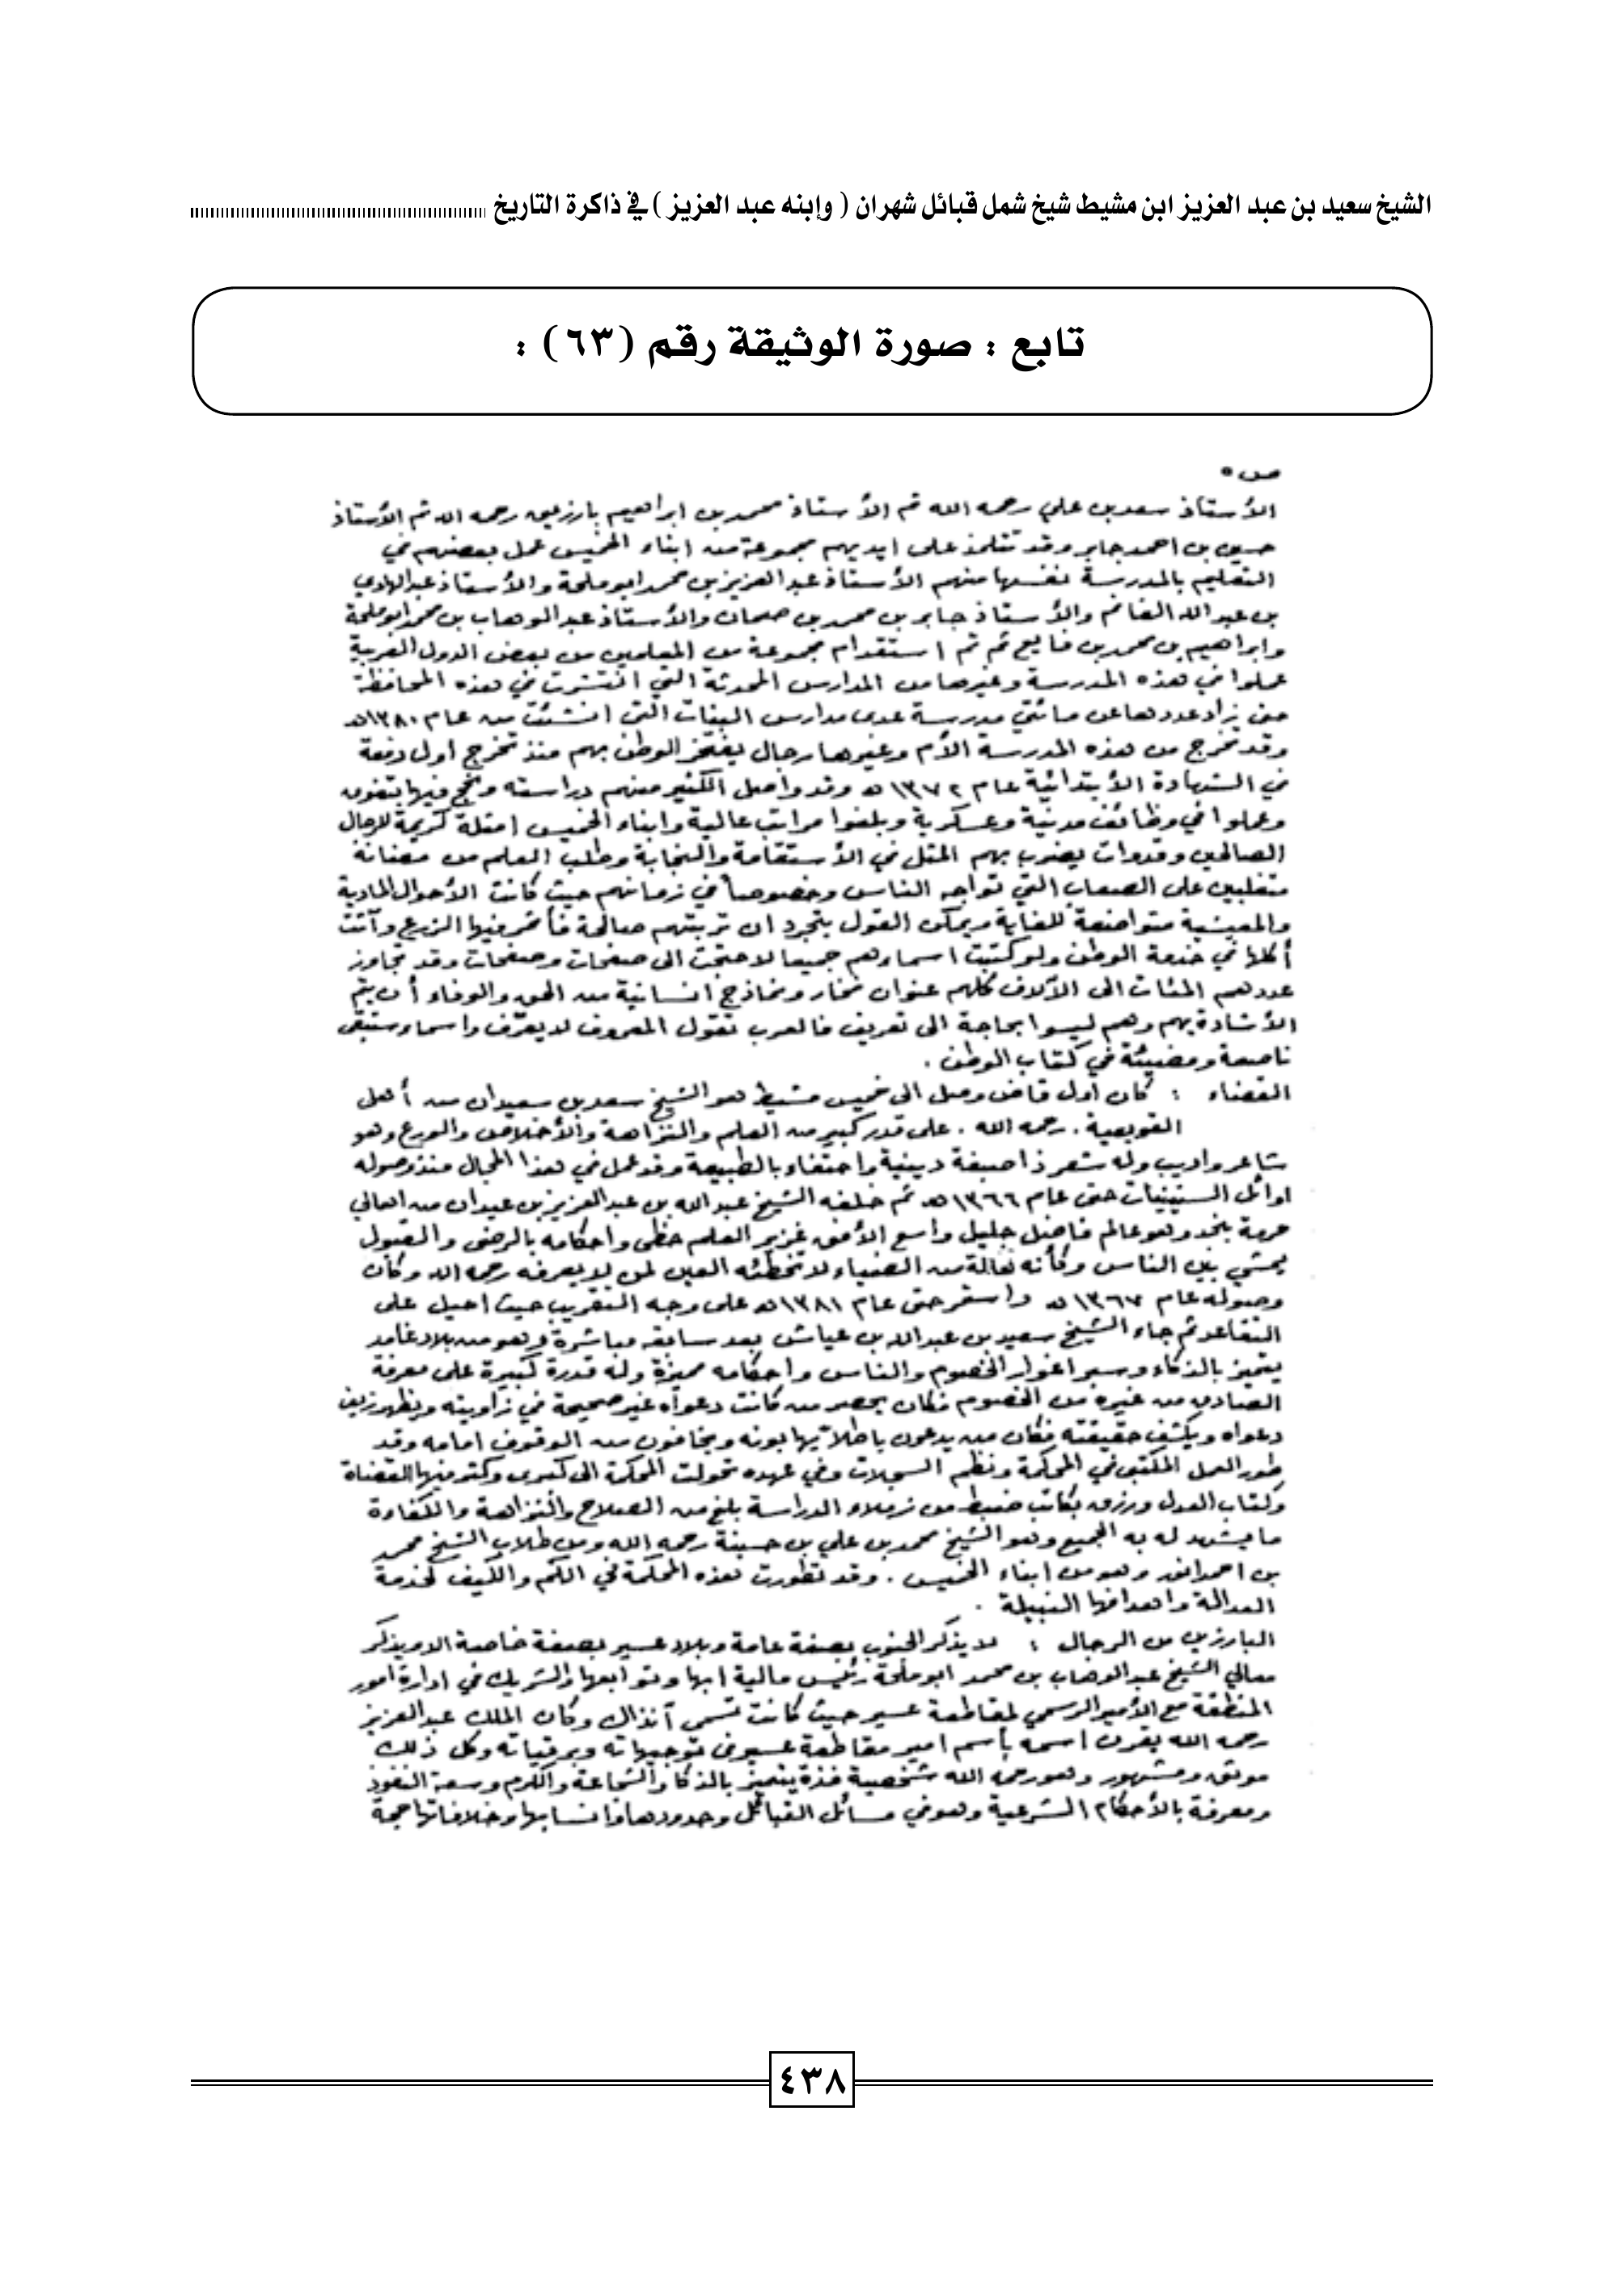 الشيخ سعيد بن عبد العزيز ابن مشيط شيخ شمل قبائل شهران ( وإبنه عبد العزيز ) في ذاكرة التاريخ
تابع : صورة الوثيقة رقم (٦٣) :
ص ٥
الأستاذ سعد بن علي رحمه الله ثم الأستاذ محمد بن ابراهيم بارزيق رحمه الله ثم الأستاذ
حسين بن احمد جابر وقد تتلمذ على ايديهم مجموعة من ابناء الخميس عمل بعضهم في
التعليم بالمدرسة نفسها منهم الأستاذ عبد العزيز بن محمد ابو ملحة والأستاذ عبد الهادي
بن عبد الله الغانم والأستاذ جابر بن محمد بن صمان والأستاذ عبد الوهاب بن محمد ابو ملحة
وابراهيم بن محمد بن فايع ثم تم استقدام مجموعة من المعلمين من بعض الدول العربية
عملوا في هذه المدرسة وغيرها من المدارس المحدثة التي انتشرت في هذه المحافظة
حتى زاد عددها عن مائتي مدرسة عدى مدارس البنات التي انشئت من عام ١٣٨٠هـ
وقد تخرج من هذه المدرسة الأم وغيرها رجال يفتخر الوطن بهم منذ تخرج اول دفعة
في الشهادة الأبتدائية عام ١٣٧٢هـ وقد واصل الكثير منهم دراسته ونجح فيها بتفوق
وعملوا في وظائف مدنية وعسكرية وبلغوا مراتب عالية وابناء الخميس امثلة كريمة للرجال
الصالحين وقدوات يضرب بهم المثل في الأستقامة والنجابة وطلب العلم من مضانة
متغلبين على الصعاب التي تواجه الناس وخصوصاً في زمانهم حيث كانت الأحوال المادية
والمعيشية متواضعة للغاية ويمكن القول بتجرد ان تربتهم صالحة فأثمر فيها الزرع وآتت
أكلها في خدمة الوطن ولو كتبت اسماءهم جميعا لاحتجت الى صفحات وصفحات وقد تجاوز
عددهم المئات الى الآلاف كلهم عنوان فخار ونماذج انسانية من الحق والوفاء أن يتم
الأشادة بهم وهم ليسوا بحاجة الى تعريف فالعرب تقول المعروف لا يعرّف واسماء ستبقى
ناصعة ومضيئة في كتاب الوطن .
القضاء : كان اول قاض وصل الى خميس مشيط هو الشيخ سعد بن سعيدان من أهل
القويعية . رحمه الله . على قدر كبير من العلم والنزاهة والأخلاق والورع وهو
شاعر واديب وله شعر ذا صبغة دينية واحتفاء بالطبيعة وقد عمل في هذا المجال منذ وصوله
اوائل الستينيات حتى عام ١٣٦٦هـ ثم خلفه الشيخ عبد الله بن عبد العزيز بن عيدان من اهالي
حرمة بنجد وهو عالم فاضل جليل واسع الأفق غزير العلم حظي واحكامه بالرضى والقبول
يمشي بين الناس وكأنه هالة من الضياء لا تخطئه العين لمن لا يعرفه رحمه الله وكان
وصوله عام ١٣٦٧هـ واستمر حتى عام ١٣٨١هـ على وجه التقريب حيث احيل على
التقاعد ثم جاء الشيخ سعيد بن عبد الله بن عياش بعد سابقه مباشرة وهو من بلاد غامد
يتميز بالذكاء وسبر اغوار الخصوم والناس واحكامه مميزة وله قدرة كبيرة على معرفة
الصادق من غيره من الخصوم فكان يحصر من كانت دعواه غير صحيحة في زاويته ويظهر زيف
دعواه ويكشف حقيقته فكان من يدعون باطلاً يهابونه ويخافون من الوقوف امامه وقد
طور العمل المكتبي في المحكمة ونظم السجلات وفي عهده تحولت المحكمة الى كبرى وكثر فيها القضاة
وكتاب العدل ورزق بكاتب ضبط من زملاء الدراسة بلغ من الصلاح والنزاهة والكفاءة
ما يشهد له به الجميع وهو الشيخ محمد بن علي بن حسينة رحمه الله ومن طلاب الشيخ محمد
بن احمد انور وهو من ابناء الخميس . وقد تطورت هذه المحكمة في الكم والكيف لخدمة
العدالة واهدافها النبيلة .
البارزين من الرجال : لا يذكر الجنوب بصفة عامة وبلاد عسير بصفة خاصة الا ويذكر
معالي الشيخ عبد الوهاب بن محمد ابو ملحة رئيس مالية ابها وتوابعها والشريك في ادارة امور
المنطقة مع الأمير الرسمي لمقاطعة عسير حيث كانت تسمى آنذاك وكان الملك عبد العزيز
رحمه الله يقرن اسمه بأسم امير مقاطعة عسير في توجيهاته وبرقياته وكل ذلك
موثق ومشهور وهو رحمه الله شخصية فذة يتميز بالذكاء والشجاعة والكرم وسعة النفوذ
ومعرفة بالأحكام الشرعية وهو في مسائل القبائل وحدودها وانسابها وخلافاتها حجة
٤٣٨